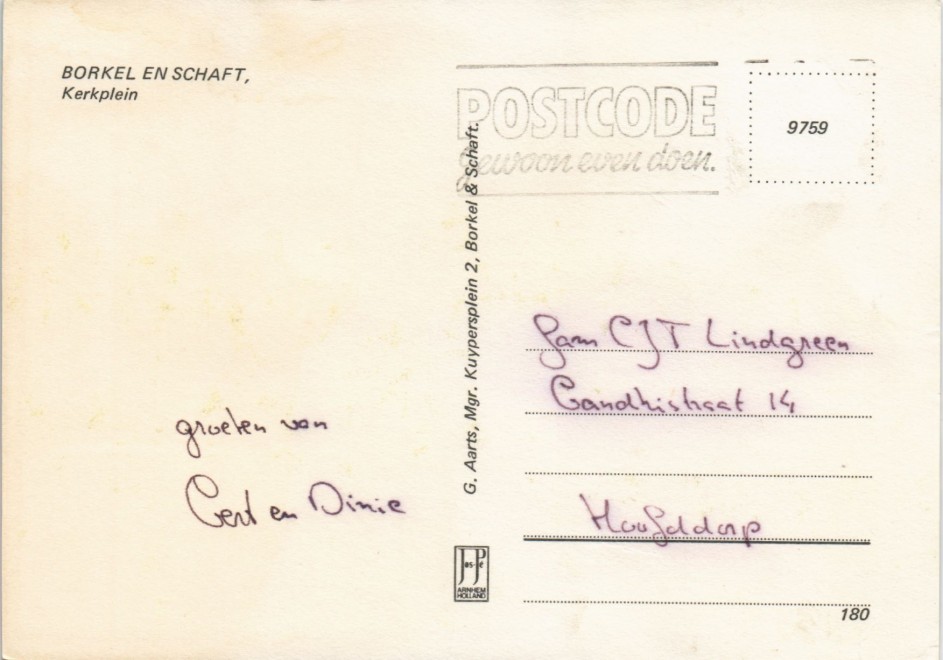 BORKEL EN SCHAFT,
Kerkplein
POSTCODE
gewoon even doen.
9759
G. Aarts, Mgr. Kuypersplein 2, Borkel & Schaft.
groeten van
Gert en Dinie
Fam CJT Lindgreen
Gandhistraat 14
Hoofddorp
Jos-Pé
ARNHEM
HOLLAND
180